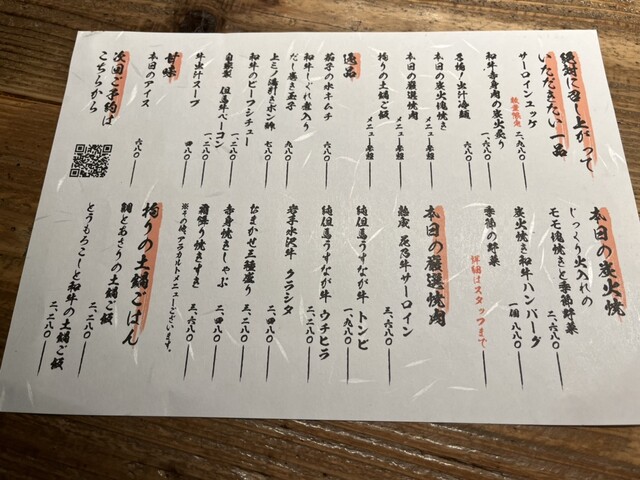 絶対に召し上がって
いただきたい一品
サーロインユッケ
数量限定 二、九八〇
和牛赤身肉の炭火炙り
一、六八〇
名物！出汁冷麺
六八〇
本日の炭火塊焼き
メニュー参照
本日の厳選焼肉
メニュー参照
拘りの土鍋ご飯
メニュー参照
逸品
茄子の水キムチ
六八〇
和牛しぐれ煮入り
だし巻き玉子
九八〇
上ミノ湯引きポン酢
七八〇
和牛のビーフシチュー
一、二八〇
自家製 但馬牛ベーコン
一、二八〇
牛出汁スープ
四八〇
甘味
本日のアイス
六八〇
次回ご予約は
こちらから
本日の炭火焼
じっくり火入れの
モモ塊焼きと季節野菜
二、六八〇
炭火焼き和牛ハンバーグ
一個 八八〇
季節の野菜
詳細はスタッフまで
本日の厳選焼肉
熟成 花乃牛サーロイン
三、六八〇
純但馬うすなが牛 トンビ
一、九八〇
純但馬うすなが牛 ウチヒラ
一、八八〇
岩手水沢牛 クラシタ
二、四八〇
おまかせ三種盛り
三、二八〇
赤身焼きしゃぶ
二、四八〇
霜降り焼きすき
三、六八〇
※その他、アラカルトメニューございます。
拘りの土鍋ごはん
鯛とあさりの土鍋ご飯
二、二八〇
とうもろこしと和牛の土鍋ご飯
二、二八〇